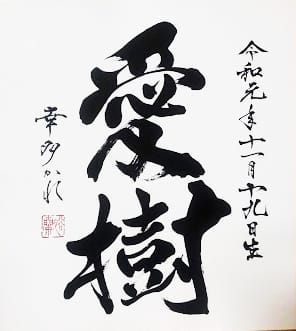 令和元年十一月十九日生
愛樹
幸多かれ